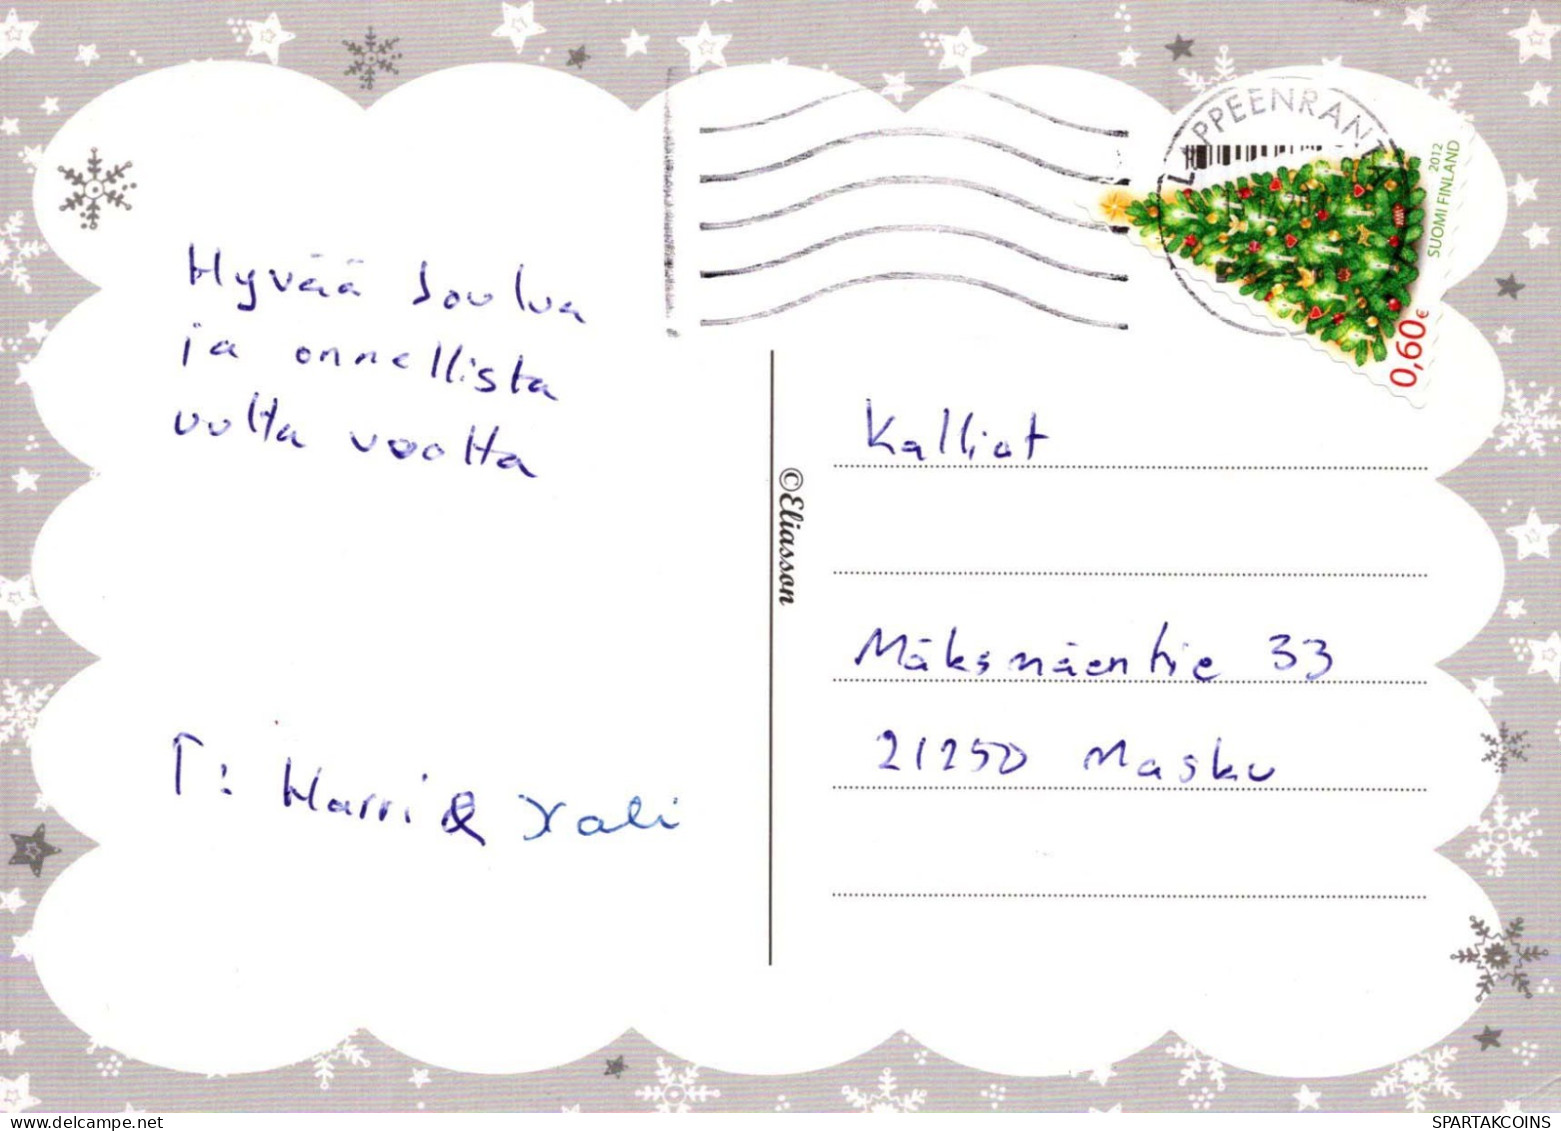 LAPPEENRANTA
2012
SUOMI FINLAND
0,60€
Hyvää Joulua
ja onnellista
uutta vuotta
T: Harri &
©Eliasson
Kalliot
Mäksmäentie 33
21250 Masku
SPARTAKCOINS